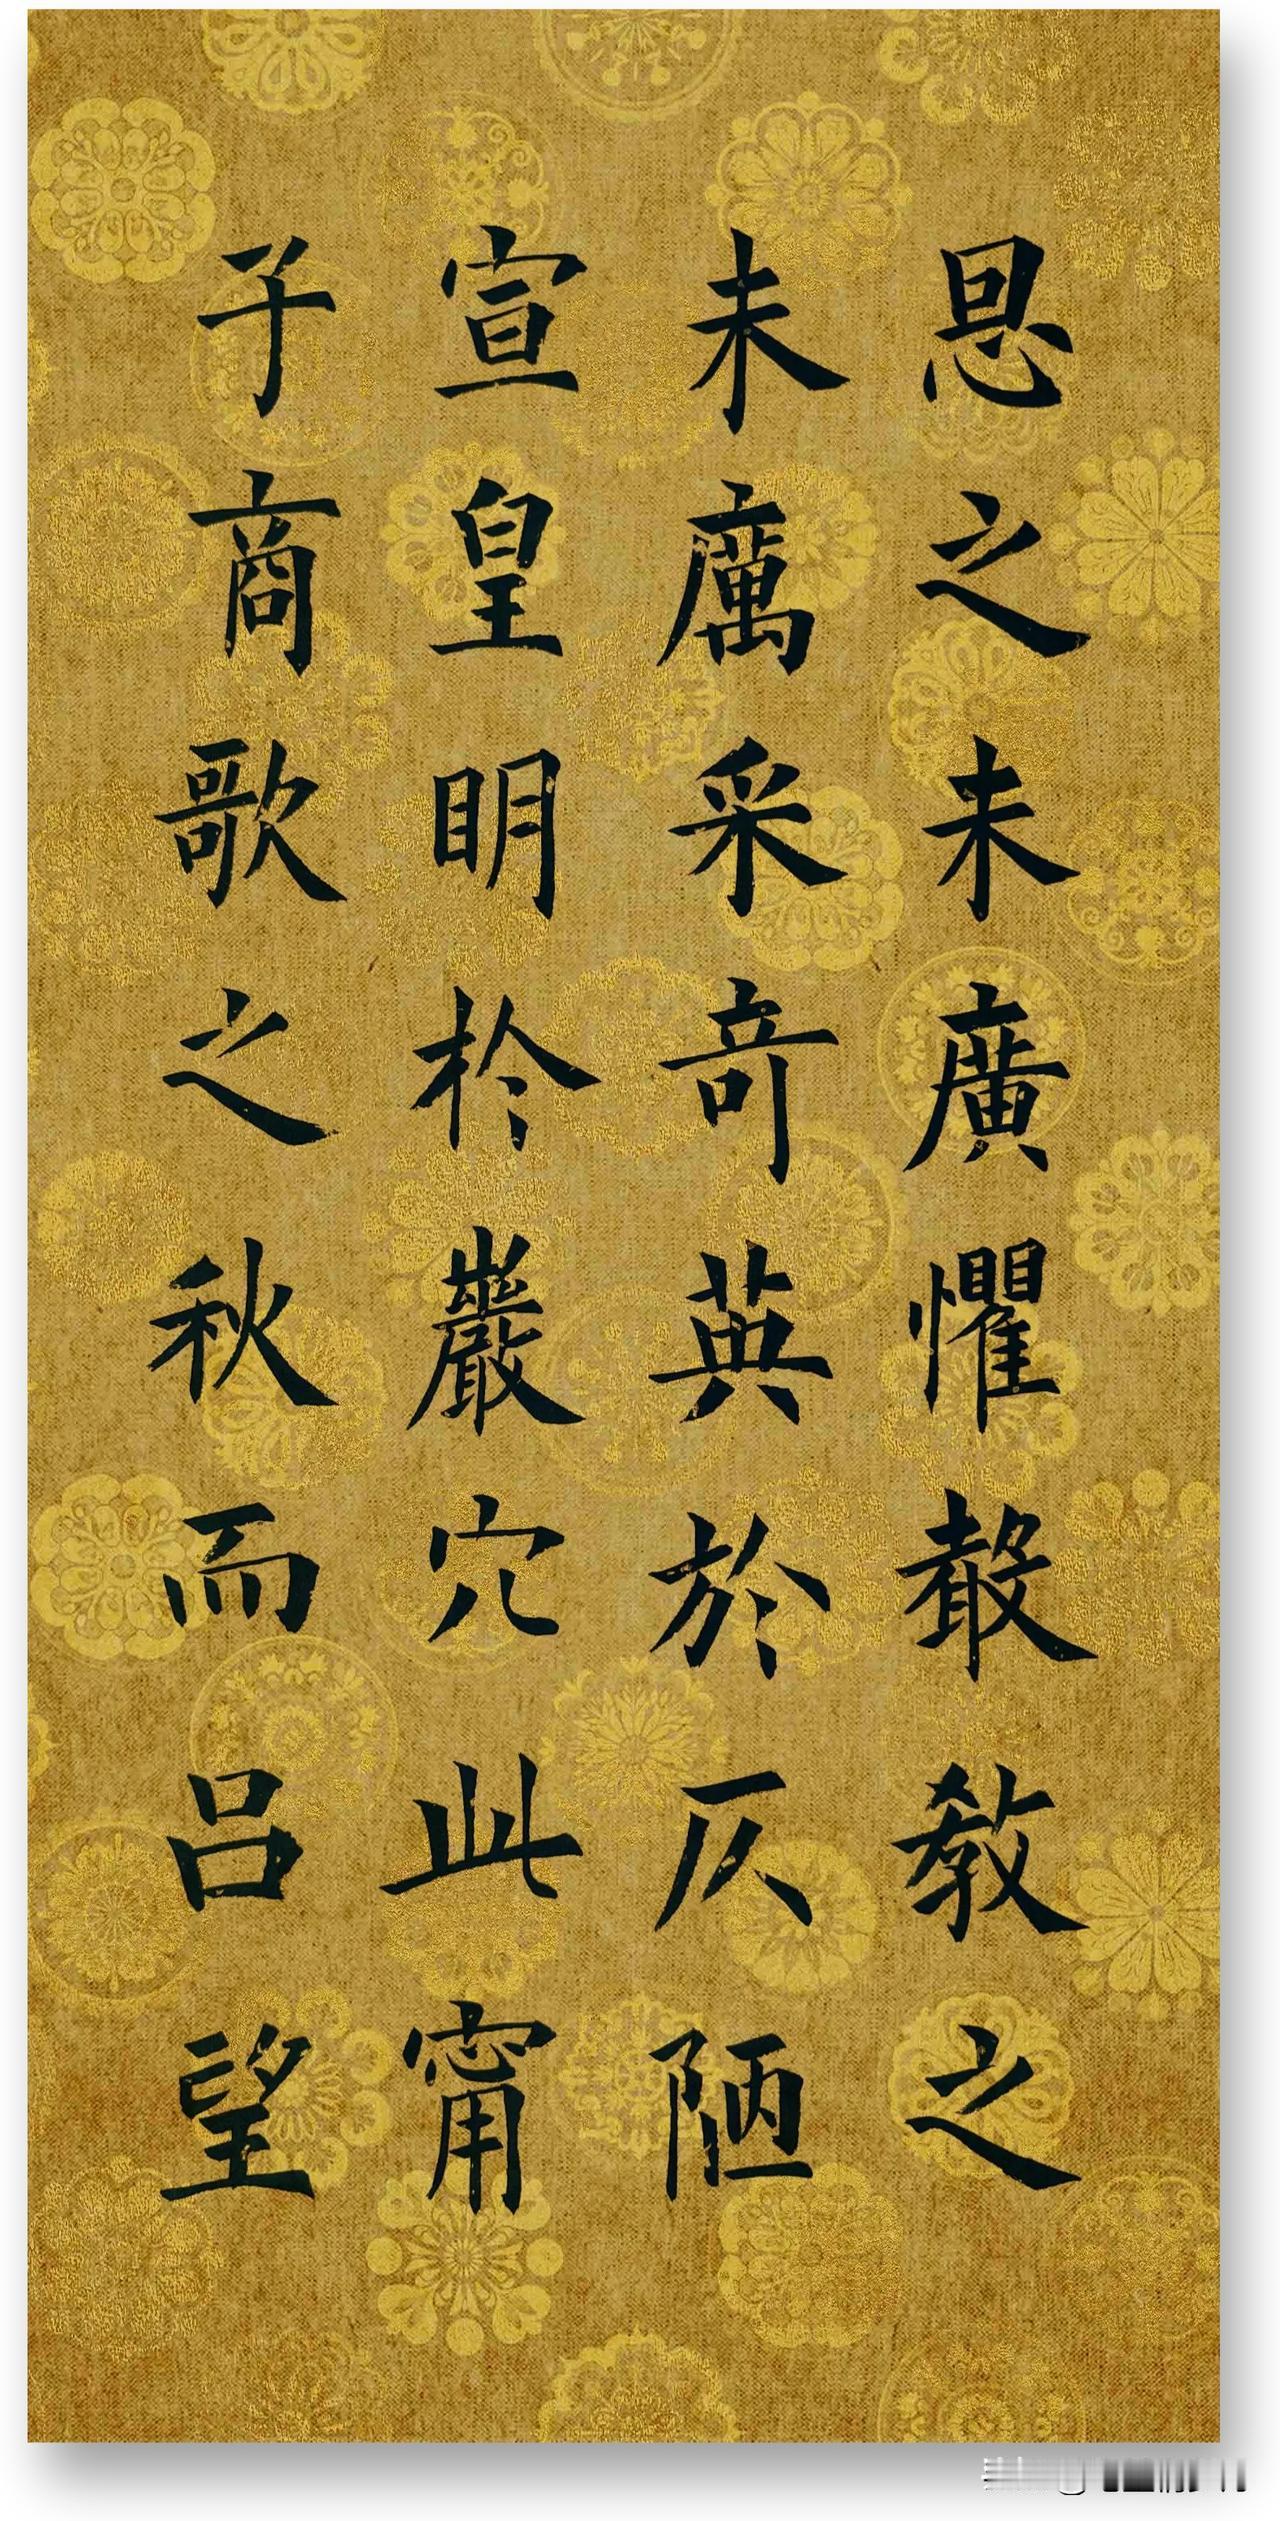 恩之未廣懼聲教之
未厲采奇英於仄陋
宣皇明於巖穴此甯
子商歌之秋而呂望